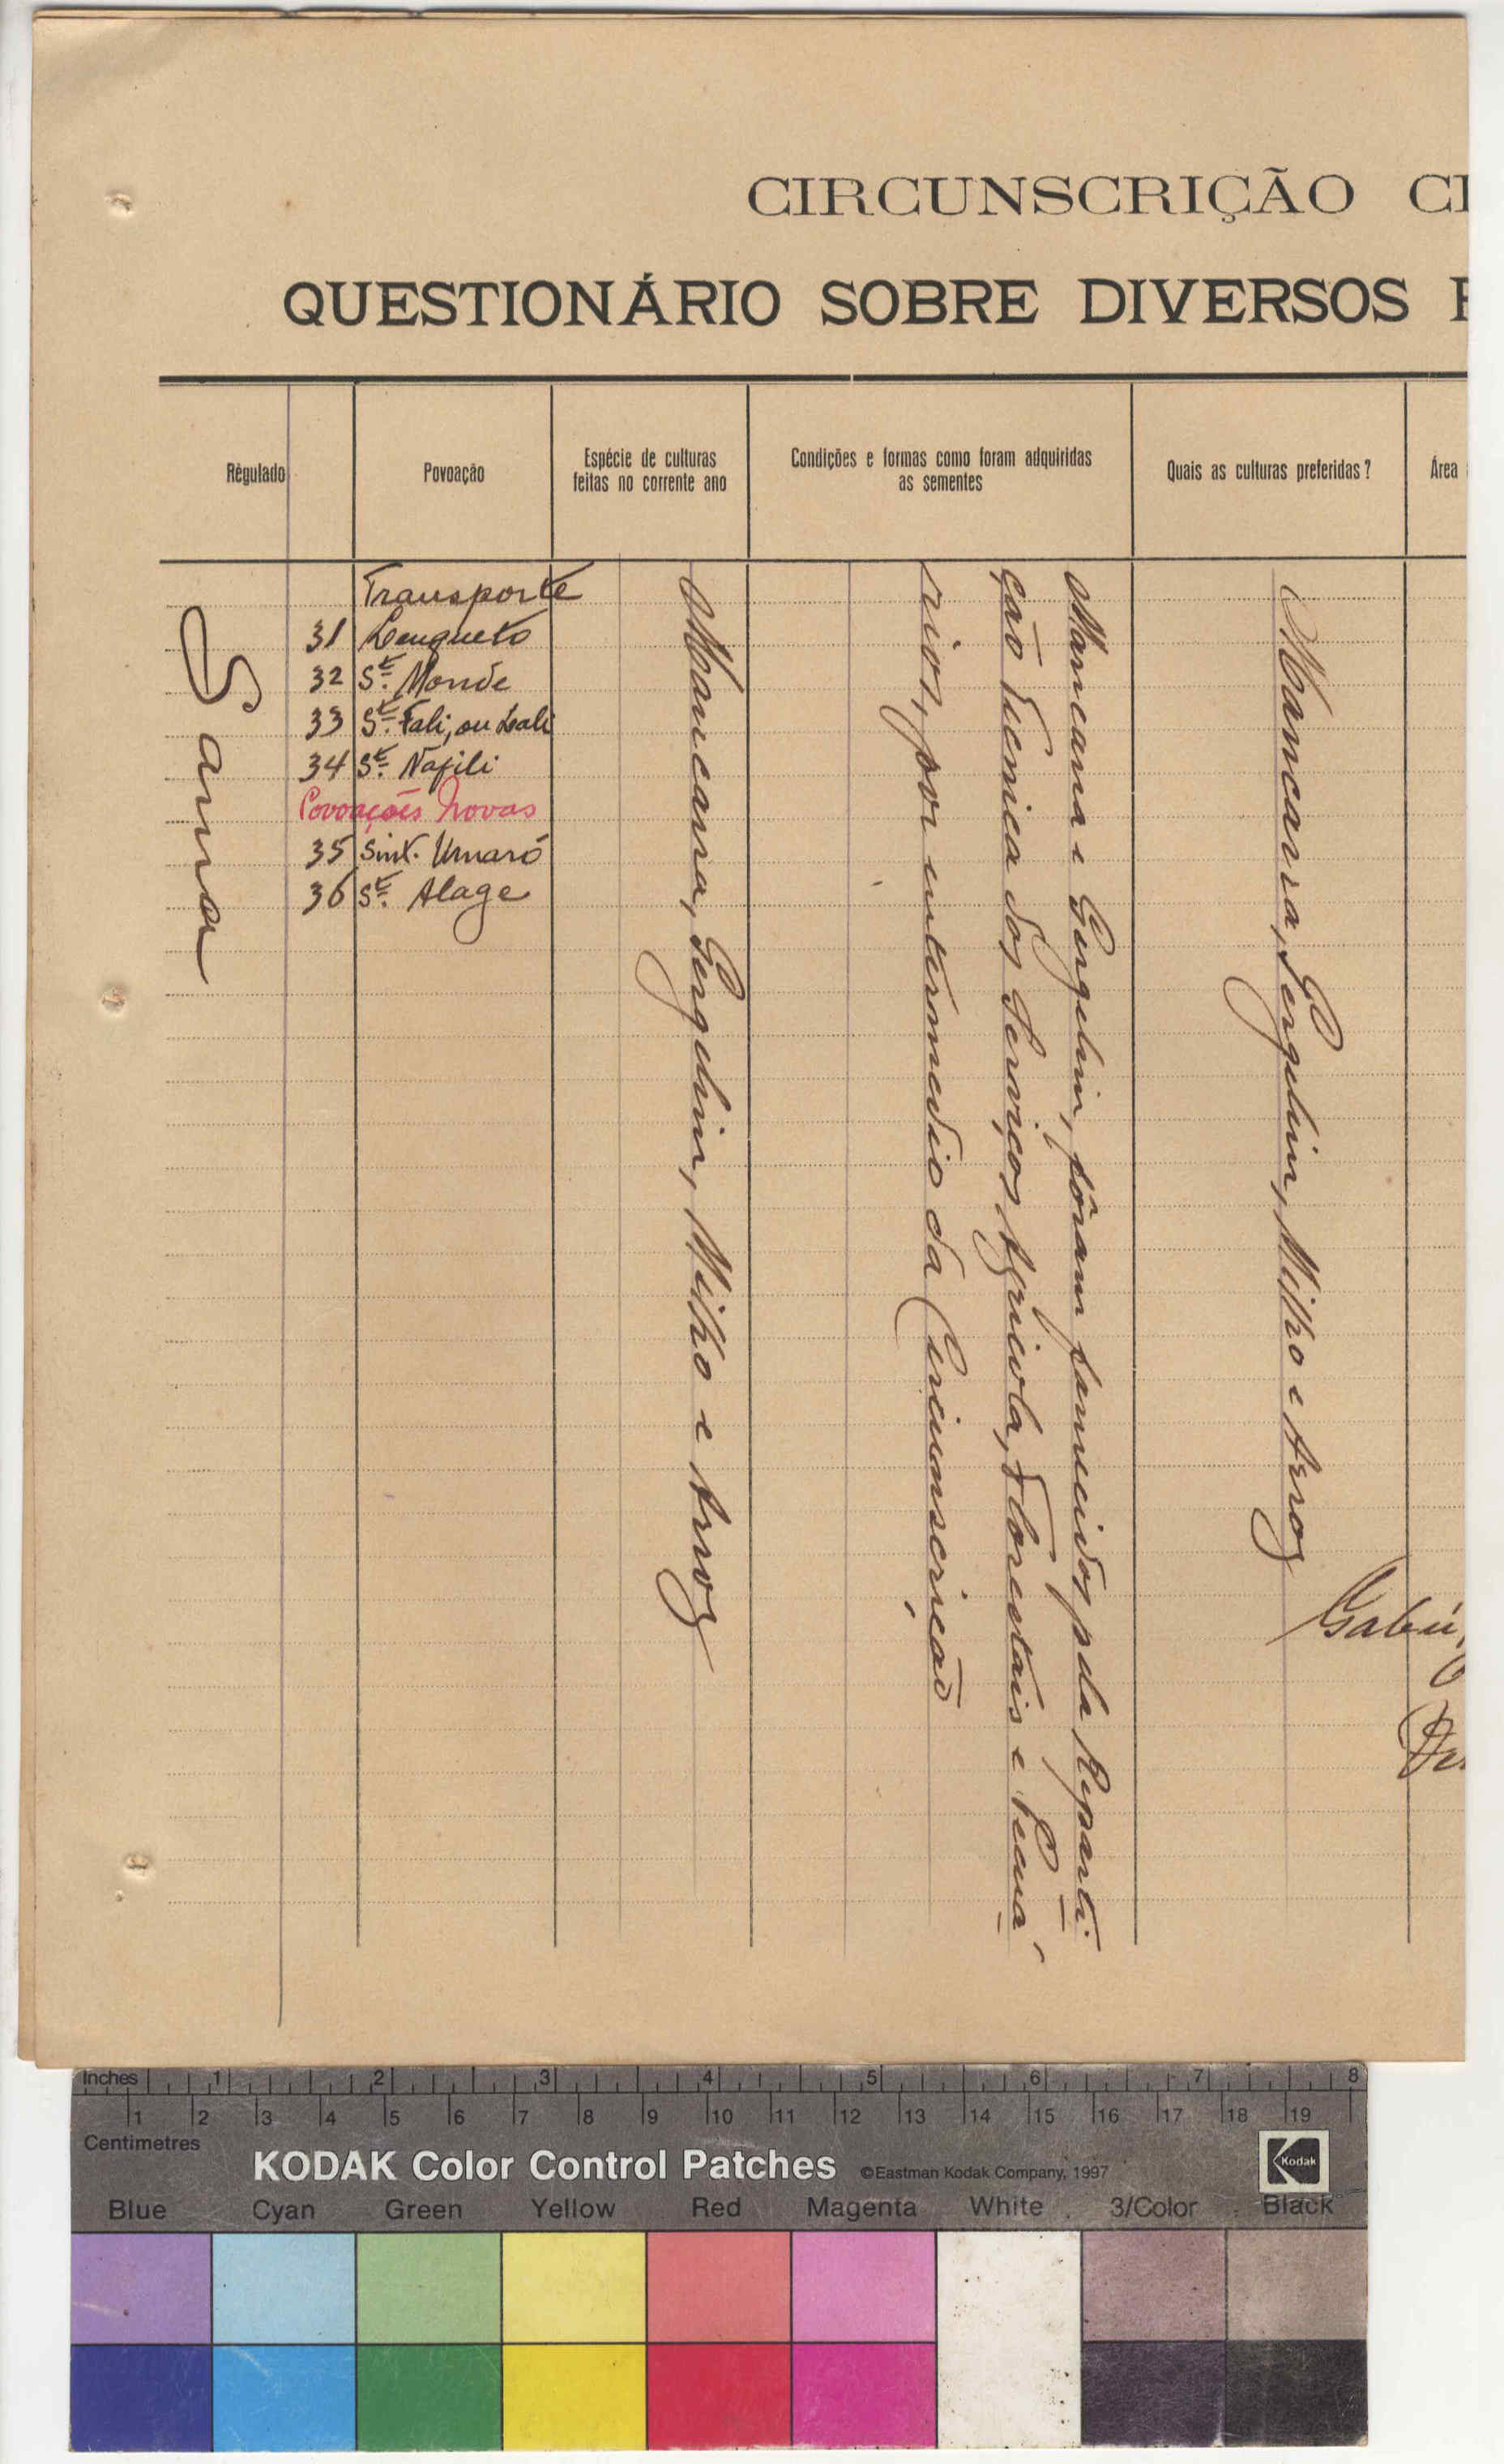 CIRCUNSCRIÇÃO CI
QUESTIONÁRIO SOBRE DIVERSOS
Régulado
Povoação
Espécie de culturas
feitas no corrente ano
Condições e formas como foram adquiridas
as sementes
Quais as culturas preferidas?
Área
Sama
Transporte
31 Lenqueto
32 St. Monde
33 St. Fali, ou Lali
34 St. Nafili
Povoações Novas
35 Sint. Umaró
36 St. Alage
Mancarra, Gergelim, Milho e Arroz
Mancarra e Gergelim, fôram fornecidos pela Reparti-
ção Técnica dos Serviços Agricola, Florestais e Pecuá-
rios, por intermedio da Circunscrição
Mancarra, Gergelim, Milho e Arroz
Gabú,
Inches 1 2 3 4 5 6 7 8
1 2 3 4 5 6 7 8 9 10 11 12 13 14 15 16 17 18 19
Centimetres
KODAK Color Control Patches ©Eastman Kodak Company, 1997 Kodak
Blue Cyan Green Yellow Red Magenta White 3/Color Black